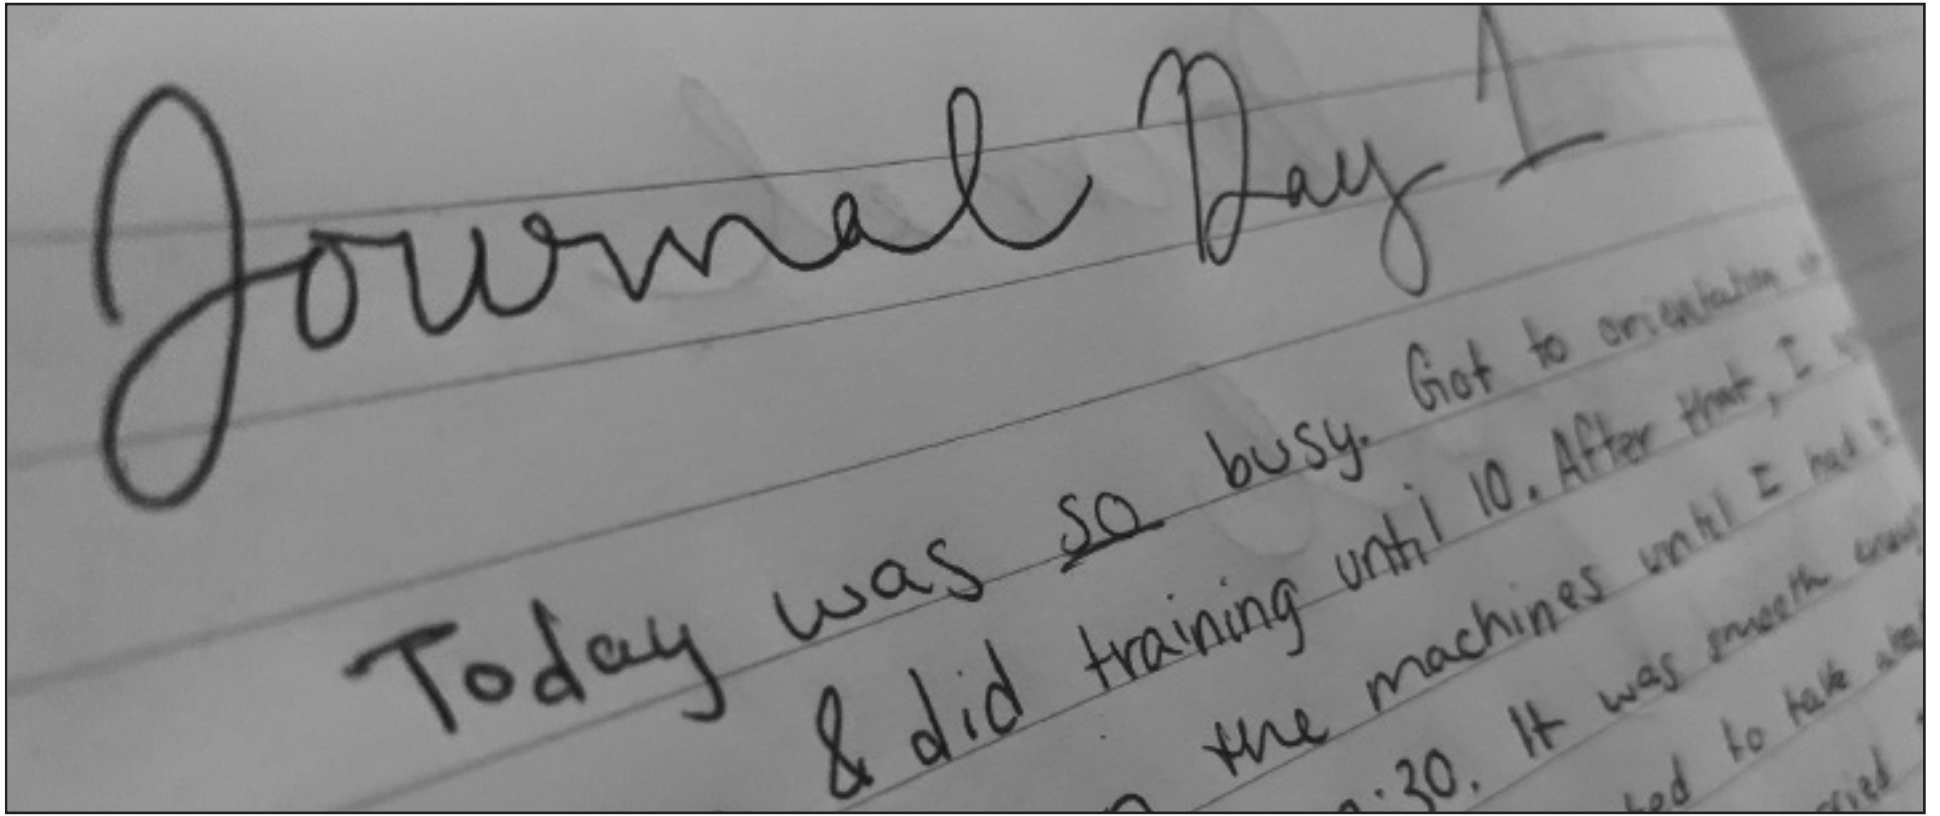 Journal Day 1
Today was so busy. Got to orientation
& did training until 10. After that, I
the machines until I had
:30. It was smooth
to take